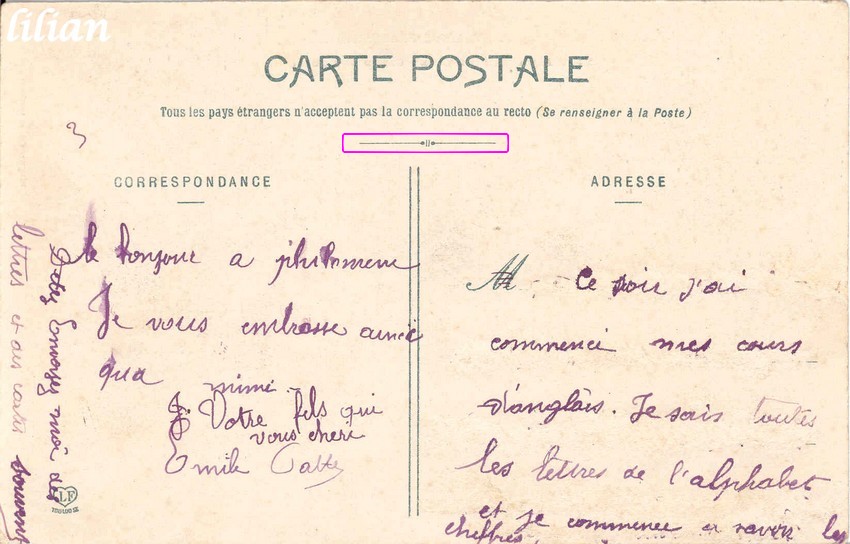 lilian
CARTE POSTALE
Tous les pays étrangers n'acceptent pas la correspondance au recto (Se renseigner à la Poste)
3
CORRESPONDANCE
le bonjour a philomene
Je vous embrasse ainci
qua mimi
Votre fils qui
vous cheri
Emile
Envoyes moi des
lettres et des cartes souvent
LF
TOULOUSE
ADRESSE
M Ce soir j'ai
commenci mes cours
d'anglais. Je sais toutes
les lettres de l'alphabet
et je commence a savoir les
cheffres